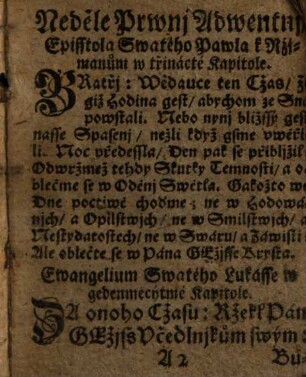 Neděle Prwnj Adwentnj
Episstola Swatého Pawla k Ržj-
manům w třinácté Kapitole.
BRatřj: Wědauce ten Cžas/ ž
giž hodina gest/ abychom ze Sn
powstali. Nebo nynj bližssý gest
nasse Spasenj/ nežli když gsme vwěři
li. Noc předessla/ Den pak se přibljžil
Odwržmež tehdy Skutky Temnosti/ a o
blečme se w Oděnj Swětla. Gakožto we
Dne poctiwě chodme: ne w Hodowá
njch/ a Opilstwjch/ ne w Smilstwjch/ a
Nestydatostech/ ne w Swáru/ a Záwisti
Ale oblečte se w Pána GEžjsse Krysta.
Ewangelium Swatého Lukásse w
gedenmecytmé Kapitole.
ZA onoho Cžasu: Ržekl Pán
GEžjss Včedlnjkům swým:
A 2 Bů-